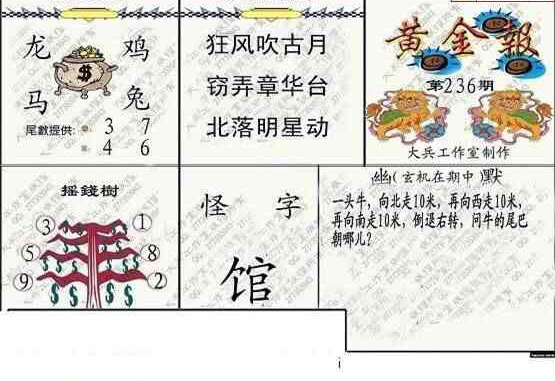 龙 鸡
马 兔
尾數提供: 單: 3 7
4 6
狂风吹古月
窃弄章华台
北落明星动
黄金報
第236期
大兵工作室制作
摇錢樹
3 1
5 8
9 2
怪 字
馆
幽(玄机在期中 默
一头牛，向北走10米，再向西走10米，
再向南走10米，倒退右转，问牛的尾巴
朝哪儿？
i